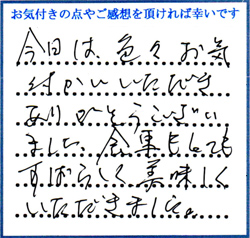 お気付きの点やご感想を頂ければ幸いです
今日は、色々お気
付かいいただき
ありがとうござい
ました。食事もとても
すばらしく美味しく
いただきました。